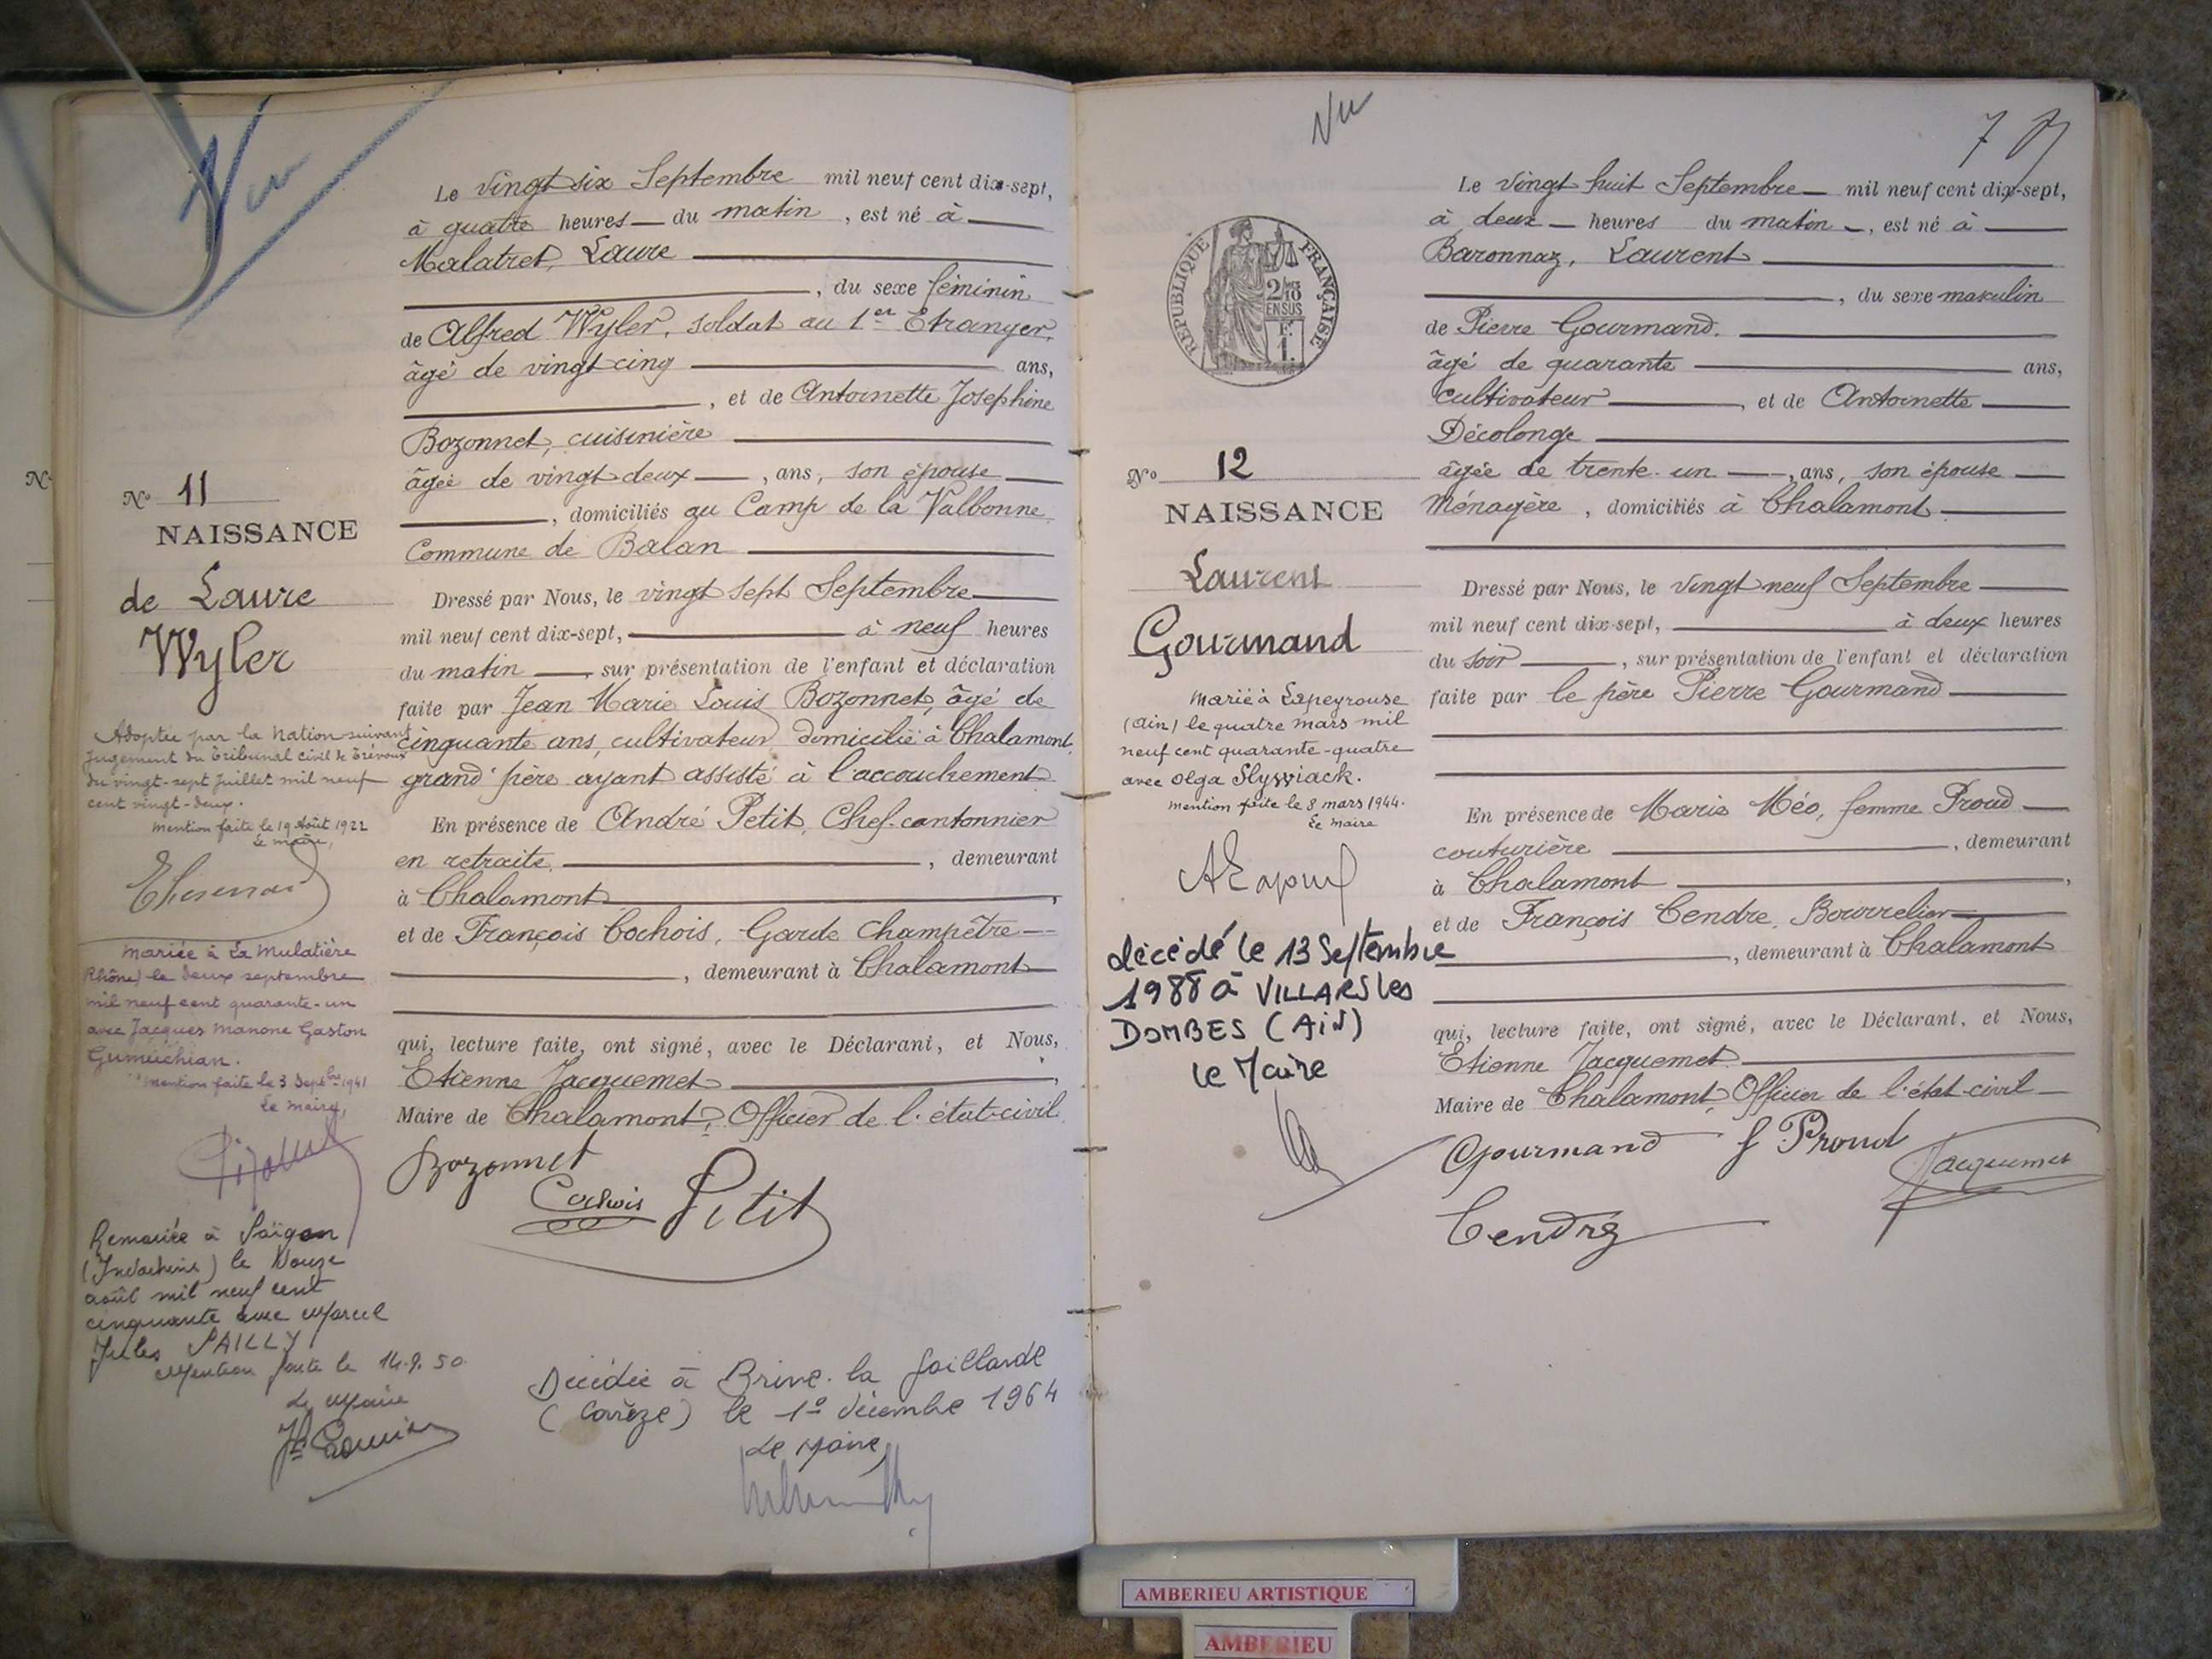 Vu
Le vingt six Septembre mil neuf cent dix-sept,
à quatre heures du matin, est né à
Malatret, Laure
, du sexe féminin
de Alfred Wyler, soldat au 1er Etranger,
âgé de vingt cinq ans,
, et de Antoinette Josephine
Bozonnet, cuisinière
âgée de vingt deux, ans, son épouse
, domiciliés au Camp de la Valbonne
Commune de Balan
Dressé par Nous, le vingt sept Septembre
mil neuf cent dix-sept, à neuf heures
du matin, sur présentation de l'enfant et déclaration
faite par Jean Marie Louis Bozonnet, âgé de
cinquante ans, cultivateur domicilié à Chalamont,
grand père ayant assisté à l'accouchement
En présence de André Petit, Chef-cantonnier
en retraite, , demeurant
à Chalamont,
et de François Cochois, Garde Champêtre
, demeurant à Chalamont
qui, lecture faite, ont signé, avec le Déclarant, et Nous,
Etienne Jacquemet,
Maire de Chalamont, Officier de l'état-civil
Bozonnet
Cochois Petit
Décédée à Brive-la-Gaillarde
(Corrèze) le 1º décembre 1964
Le Maire,
No
No 11
NAISSANCE
de Laure
Wyler
Adoptée par la Nation suivant
Jugement du Tribunal civil de Trévoux
du vingt-sept Juillet mil neuf
cent vingt-deux.
Mention faite le 19 Août 1922
Le maire,
Mariée à La Mulatière
Rhône) le deux septembre
mil neuf cent quarante-un
avec Jacques Manone Gaston
Gumuchian.
Mention faite le 3 Septbre 1941
Le maire,
Remariée à Saïgon
(Indochine) le Douze
août mil neuf cent
cinquante avec Marcel
Jules SAILLY
Mention faite le 14.9.50
Le Maire
Vu
7
Le vingt huit Septembre mil neuf cent dix-sept,
à deux heures du matin, est né à
Baronnaz, Laurent
, du sexe masculin
de Pierre Gourmand.
âgé de quarante ans,
cultivateur, et de Antoinette
Décolonge
âgée de trente-un, ans, son épouse
Ménagère, domiciliés à Chalamont
Dressé par Nous, le vingt-neuf Septembre
mil neuf cent dix-sept, à deux heures
du soir, sur présentation de l'enfant et déclaration
faite par le père Pierre Gourmand
En présence de Marie Méo, femme Proud
couturière, demeurant
à Chalamont,
et de François Cendre, Bourrelier
, demeurant à Chalamont
qui, lecture faite, ont signé, avec le Déclarant, et Nous,
Etienne Jacquemet
Maire de Chalamont, Officier de l'état-civil
Gourmand f Proud
Jacquemet
Cendre
RÉPUBLIQUE FRANÇAISE
2/10
EN SUS
F.
1.
No 12
NAISSANCE
Laurent
Gourmand
Marié à Lapeyrouse
(Ain) le quatre mars mil
neuf cent quarante-quatre
avec Olga Slyssiack.
Mention faite le 8 mars 1944.
Le Maire
décédé le 13 Septembre
1988 à VILLARS les
DOMBES (AiN)
le Maire
AMBERIEU ARTISTIQUE
AMBERIEU